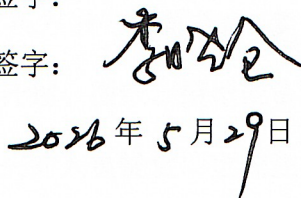 签字:
签字:
2026年5月29日